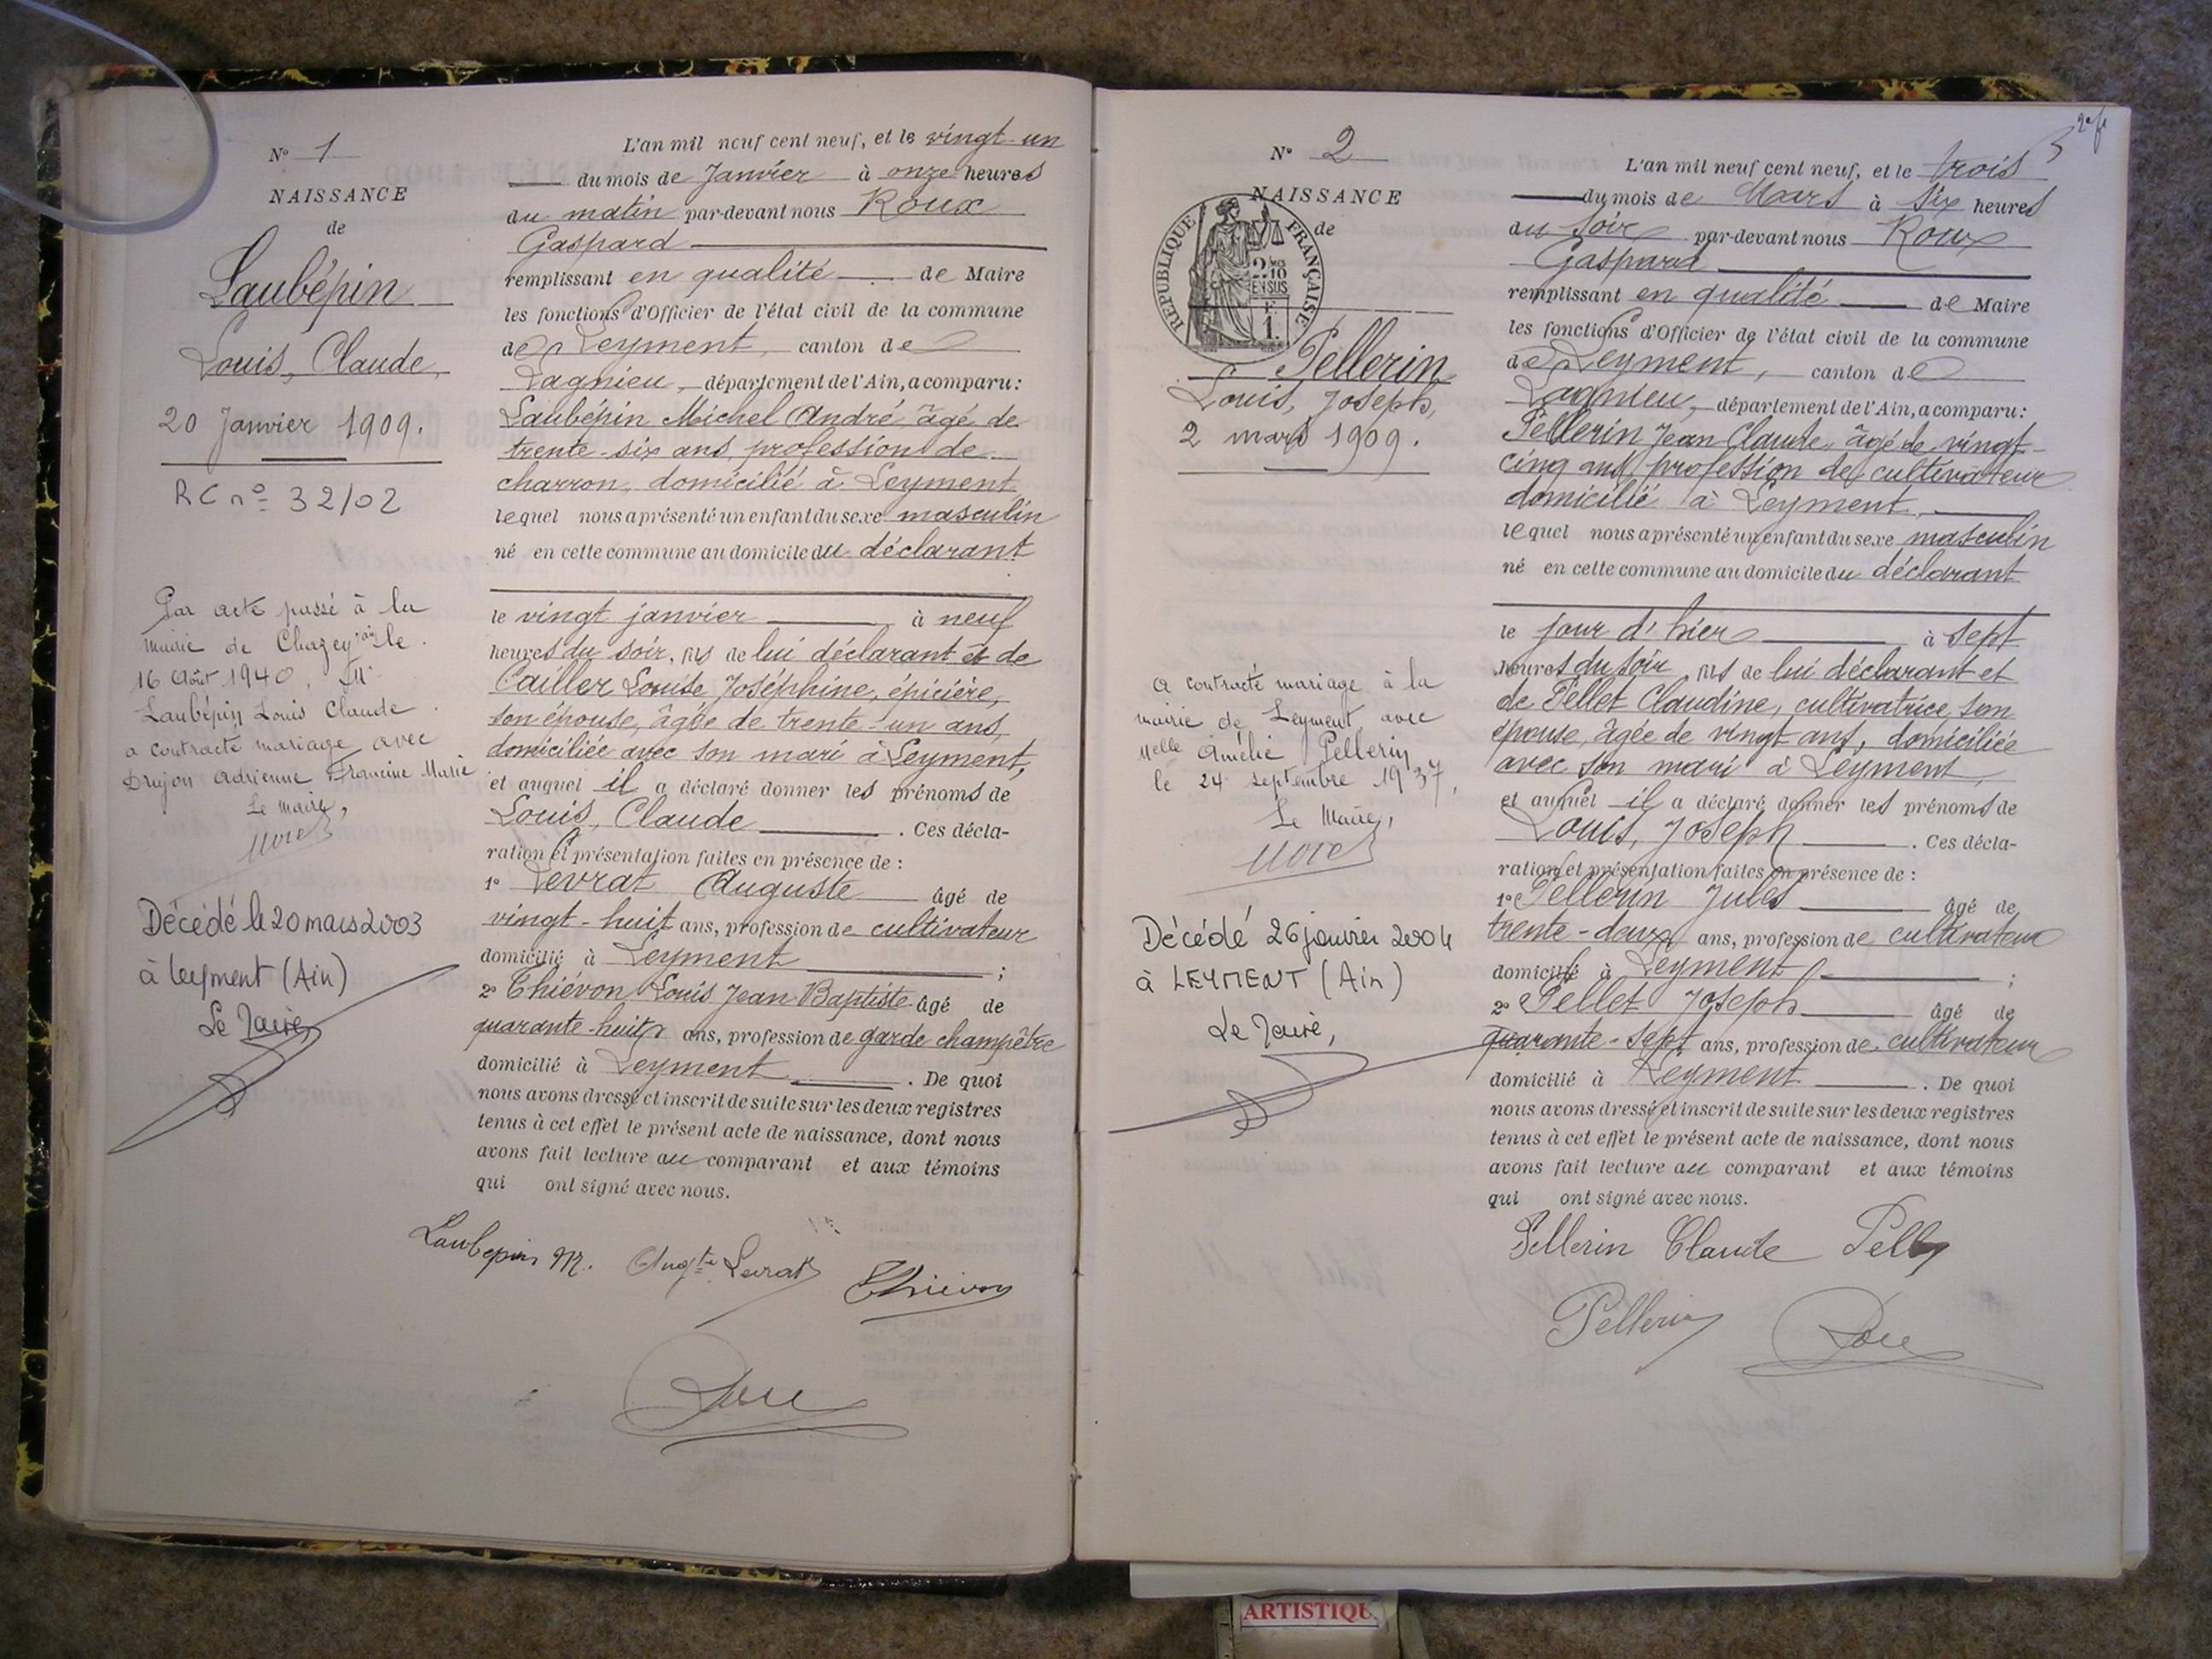 N° 1
NAISSANCE
de
Laubépin
Louis, Claude,
20 Janvier 1909.
RC n° 32/02
Par acte passé à la
mairie de Chazey le
16 Août 1940, Mr
Laubépin Louis Claude
a contracté mariage avec
Drujon Adrienne Francine Marie
Le Maire,
Décédé le 20 mars 2003
à Leyment (Ain)
Le Maire,
L'an mil neuf cent neuf, et le vingt-un
du mois de Janvier à onze heures
du matin par-devant nous Roux
Gaspard
remplissant en qualité de Maire
les fonctions d'Officier de l'état civil de la commune
de Leyment, canton de
Lagnieu, département de l'Ain, a comparu:
Laubépin Michel André âgé de
trente-six ans, profession de
charron, domicilié à Leyment
lequel nous a présenté un enfant du sexe masculin
né en cette commune au domicile du déclarant
le vingt janvier à neuf
heures du soir, fils de lui déclarant et de
Cailler Louise Joséphine, épicière,
son épouse, âgée de trente-un ans,
domiciliée avec son mari à Leyment,
et auquel il a déclaré donner les prénoms de
Louis, Claude. Ces décla-
ration et présentation faites en présence de :
1° Levrat Auguste âgé de
vingt-huit ans, profession de cultivateur
domicilié à Leyment ;
2° Thiévon Louis Jean-Baptiste âgé de
quarante-huit ans, profession de garde champêtre
domicilié à Leyment. De quoi
nous avons dressé et inscrit de suite sur les deux registres
tenus à cet effet le présent acte de naissance, dont nous
avons fait lecture au comparant et aux témoins
qui ont signé avec nous.
Laubépin M. Augte Levrat Thiévon
N° 2
NAISSANCE
de
RÉPUBLIQUE FRANÇAISE
2/10
EN SUS
1F
Pellerin
Louis, Joseph,
2 mars 1909.
a contracté mariage à la
mairie de Leyment, avec
Melle Amélie Pellerin
le 24 septembre 1937,
Le Maire,
Décédé 26 janvier 2004
à LEYMENT (Ain)
Le Maire,
L'an mil neuf cent neuf, et le trois
du mois de Mars à six heures
du soir par-devant nous Roux
Gaspard
remplissant en qualité de Maire
les fonctions d'Officier de l'état civil de la commune
de Leyment, canton de
Lagnieu, département de l'Ain, a comparu:
Pellerin Jean Claude, âgé de vingt-
cinq ans, profession de cultivateur
domicilié à Leyment,
lequel nous a présenté un enfant du sexe masculin
né en cette commune au domicile du déclarant
le jour d'hier à sept
heures du soir fils de lui déclarant et
de Pellet Claudine, cultivatrice, son
épouse, âgée de vingt ans, domiciliée
avec son mari à Leyment,
et auquel il a déclaré donner les prénoms de
Louis, Joseph. Ces décla-
ration et présentation faites en présence de :
1° Pellerin Jules âgé de
trente-deux ans, profession de cultivateur
domicilié à Leyment ;
2° Pellet Joseph âgé de
quarante-sept ans, profession de cultivateur
domicilié à Leyment. De quoi
nous avons dressé et inscrit de suite sur les deux registres
tenus à cet effet le présent acte de naissance, dont nous
avons fait lecture au comparant et aux témoins
qui ont signé avec nous.
Pellerin Claude
Pellerin
ARTISTIQU